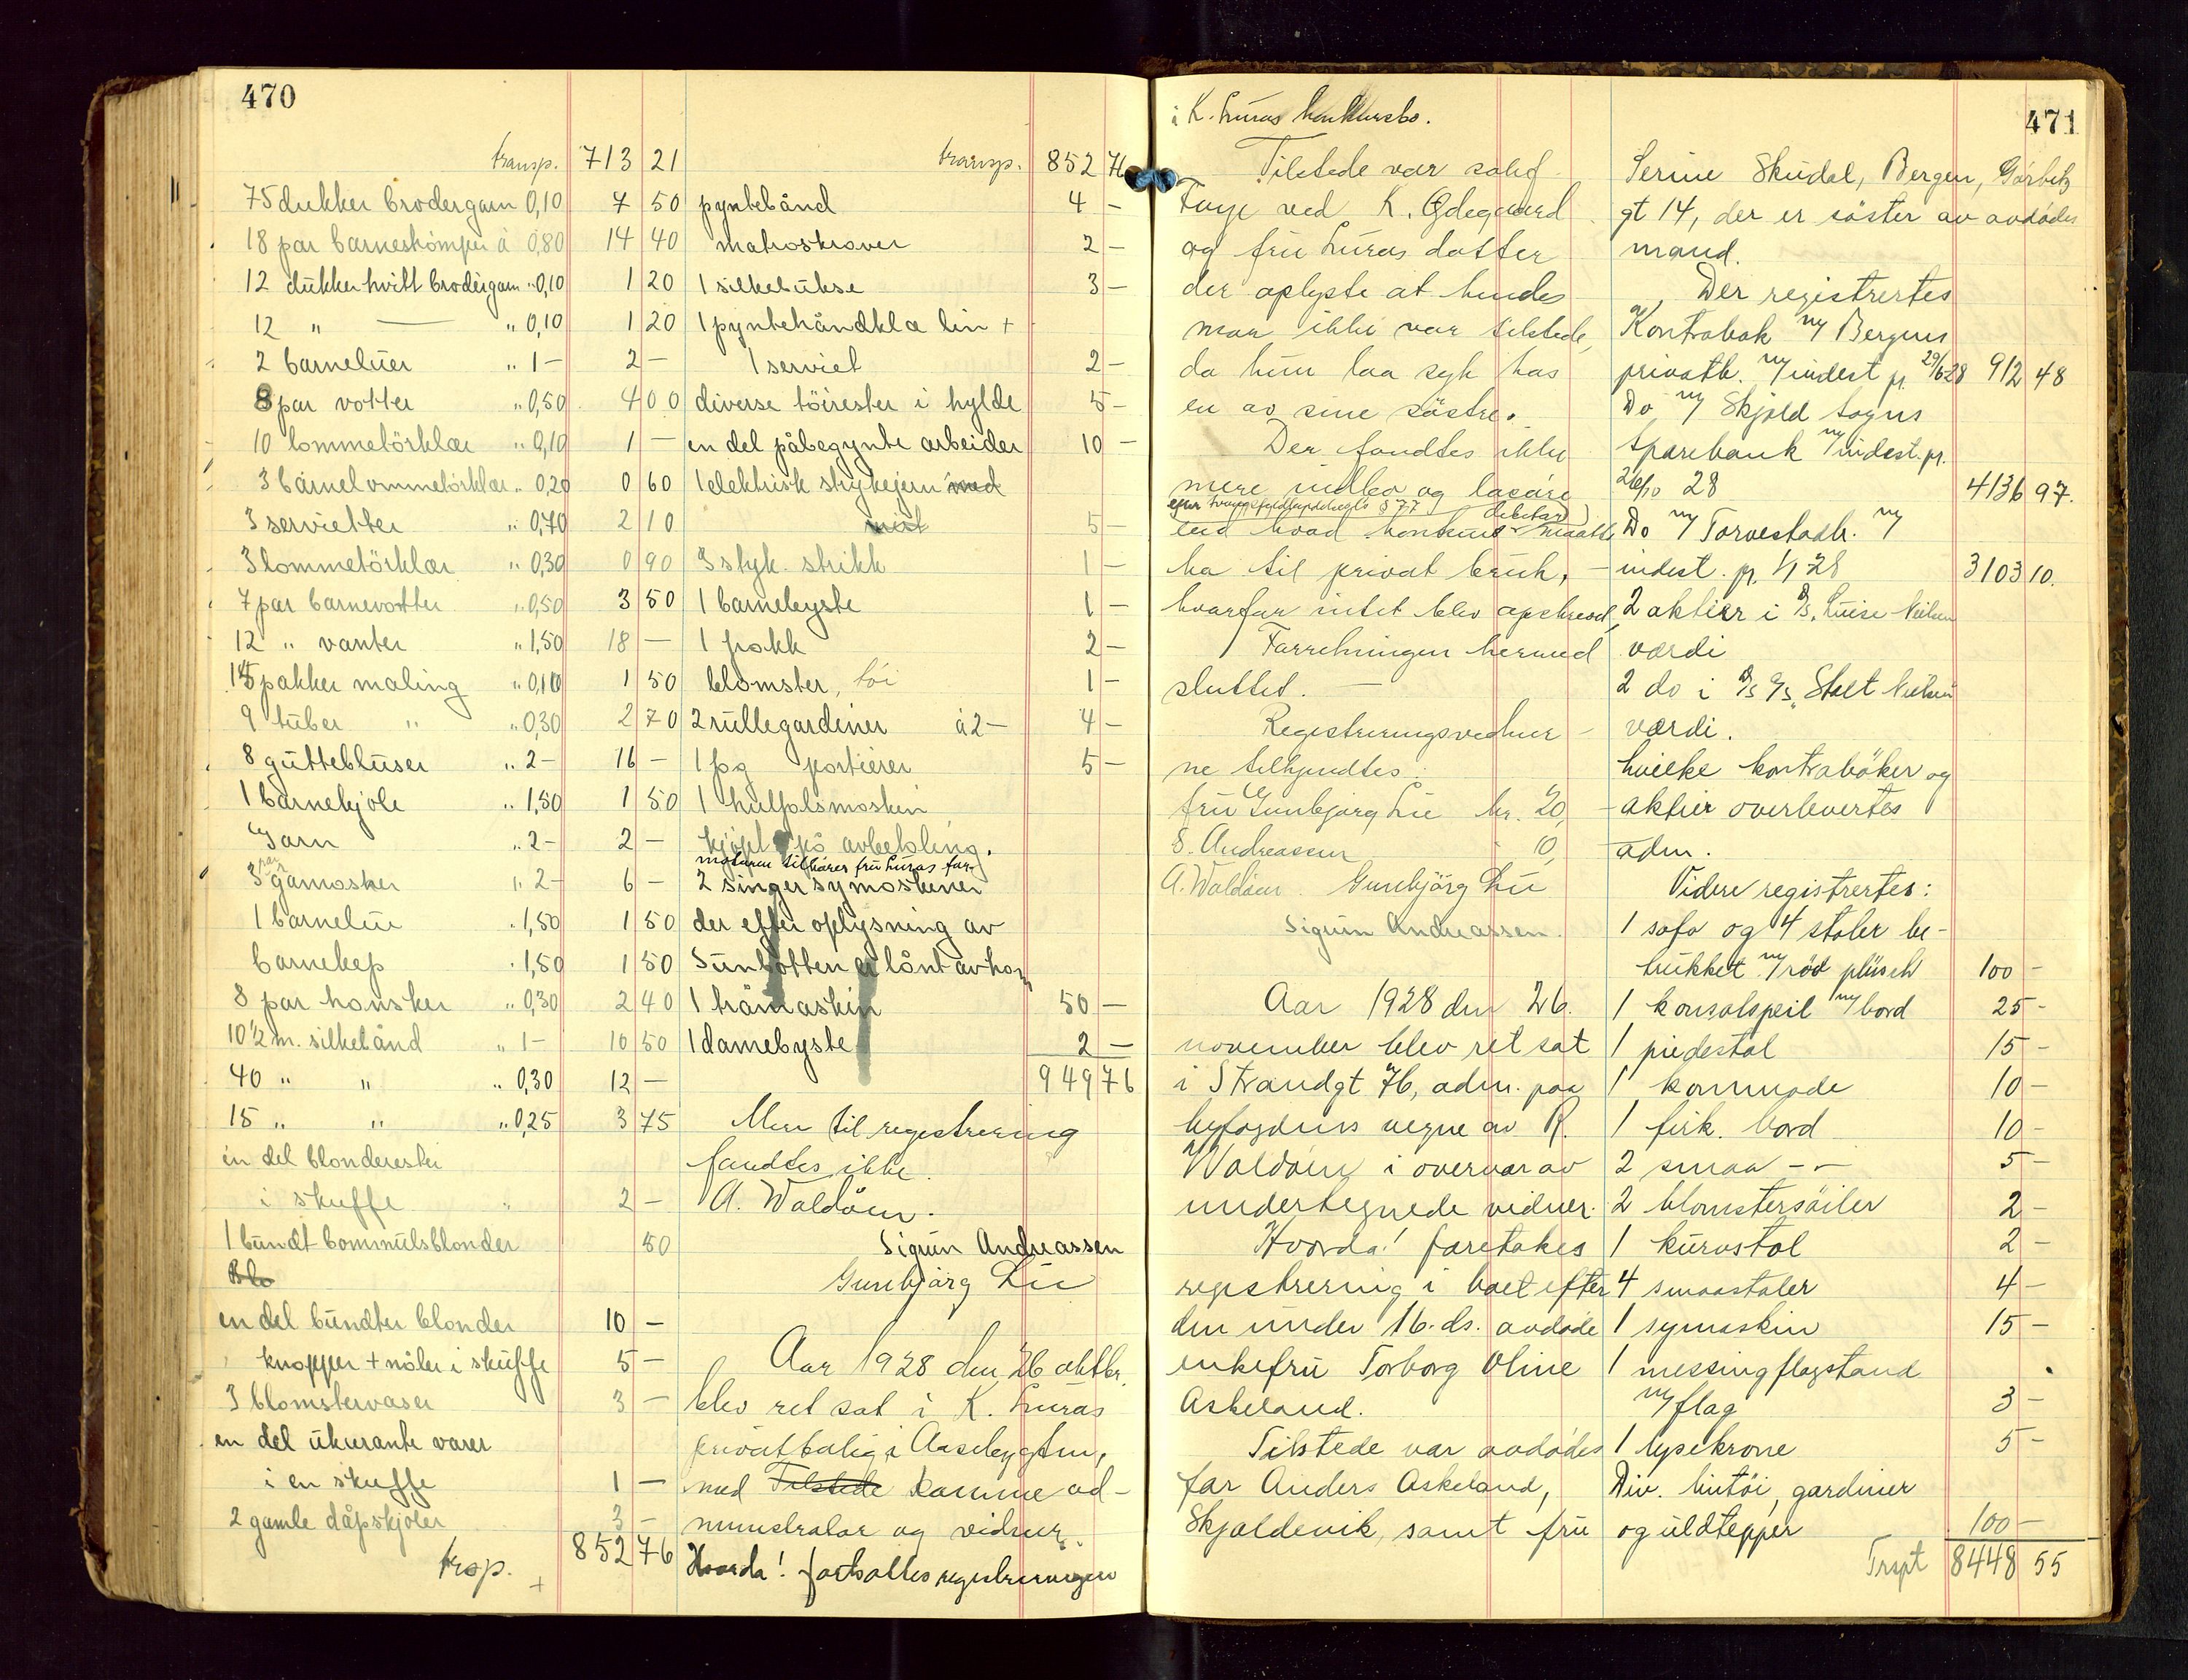 470
transp. 713 21
75 dukker brodergarn 0,10 7 50
18 par barneskömper à 0,80 14 40
12 dukker hvitt brodergarn " 0,10 1 20
12 " — " 0,10 1 20
2 barneluer " 1- 2 -
8 par votter " 0,50 4 00
10 lommetörklær " 0,10 1 -
3 barnelommetörklær " 0,20 0 60
3 servietter " 0,70 2 10
3 lommetörklær " 0,30 0 90
7 par barnevotter " 0,50 3 50
12 " vanter " 1,50 18 -
15 pakker maling " 0,10 1 50
9 tuber " " 0,30 2 70
8 gutteblüser " 2- 16 -
1 barnekjole " 1,50 1 50
Garn " 2- 2 -
3 par gamasker " 2- 6 -
1 barnelue " 1,50 1 50
barnekep " 1,50 1 50
8 par hansker " 0,30 2 40
10½ m. silkebånd " 1- 10 50
40 " " " 0,30 12 -
15 " " " 0,25 3 75
en del blonderester
i skuffe " 2 -
1 bundt bomnulsblonder 50
Blo
en del bundter blonder 10 -
knapper + nåler i skuffe 5 -
3 blomstervaser 3 -
en del ukurante varer
i en skuffe 1 -
2 gamle dåpskjoler 3 -
trsp. 852 76
transp. 852 76
pyntebånd 4 -
matroskraver 2 -
1 silkebukse 3 -
1 pyntehåndkla lin +
1 serviet 2 -
diverse töirester i hylde 5 -
en del påbegynte arbeider 10 -
1 elektrisk strykejern med
rist 5 -
3 styk. strikk 1 -
1 barnebyste 1 -
1 pokk 2 -
blomster, töi 1 -
2 rullegardiner à 2- 4 -
1 fag portierer 5 -
1 hulfalsmaskin
kjöpt på avbetaling.
motoren tilhører fru Luras far
2 singer symaskiner
der efter oplysning av
Sunbotten er lånt av ham
1 håmaskin 50 -
1 damebyste 2 -
949 76
Mer til registrering
fandtes ikke.
A. Waldöen.
Sigrun Andreassen
Gunbjørg Lie
Aar 1928 den 26 oktbr.
blev ret sat i K. Luras
privatbolig i Aasebygden,
med Tilstede samme ad-
ministrator og vidner.
Hvorda! fortsattes registreringen
i K. Luras konkursbo.
Tilstede var sakf.
Faye ved K. Ødegaard
og fru Luras datter
der oplyste at hendes
mor ikke var tilstede,
da hun laa syk hos
en av sine søstre.
Der fandtes ikke
mere indbo og løsøre
efter tvangsfuldbyrdelsesls § 77
end hvad konkurs debitor maatte
ha til privat bruk, -
hvorfor intet blev opskrevet,
Forretningen hermed
sluttet. —
Registreringsvidner-
ne tilkjendtes:
fru Gunbjørg Lie kr. 20,-
S. Andreassen " 10,-
A. Waldöen. Gunbjörg Lie
Sigrun Andreassen.
Aar 1928 den 26.
november blev ret sat
i Strandgt 76, adm. paa
byfogdens vegne av R.
Waldöen i overvær av
undertegnede vidner.
Hvorda! foretokes
registrering i boet efter
den under 16. ds. avdøde
enkefru Torborg Oline
Askeland.
Tilstede var avdødes
far Anders Askeland,
Skjoldevik, samt fru
471
Serine Skudal, Bergen, Görbitz
gt 14, der er søster av avdødes
mand.
Der registrertes
Kontrabok m/ Bergens
privatb. m/ indest pr. 29/6 28 912 48
Do m/ Skjold sogns
Sparebank m/ indest. pr.
26/10 28 4136 97.
Do m/ Torvestadb. m/
indest. pr. 1/1 28 3103 10.
2 aktier i D/S. Luise Nielsen
værdi
2 do i D/S A/S. Stalt Nielsen
værdi.
hvilke kontrabøker og
aktier overlevertes
adm.
Videre registrertes:
1 sofa og 4 stoler be-
trukket m/ röd plüsch 100 -
1 konsolspeil m/ bord 25 -
1 piedestal 15 -
1 kommode 10 -
1 firk. bord 10 -
2 smaa -"- 5 -
2 blomstersöiler 2 -
1 kurvstol 2 -
4 smaastoler 4 -
1 symaskin 15 -
1 messing flagstand
m/ flag 3 -
1 lysekrone 5 -
Div. lintöi, gardiner
og uldtepper 100 -
Trspt 8448 55